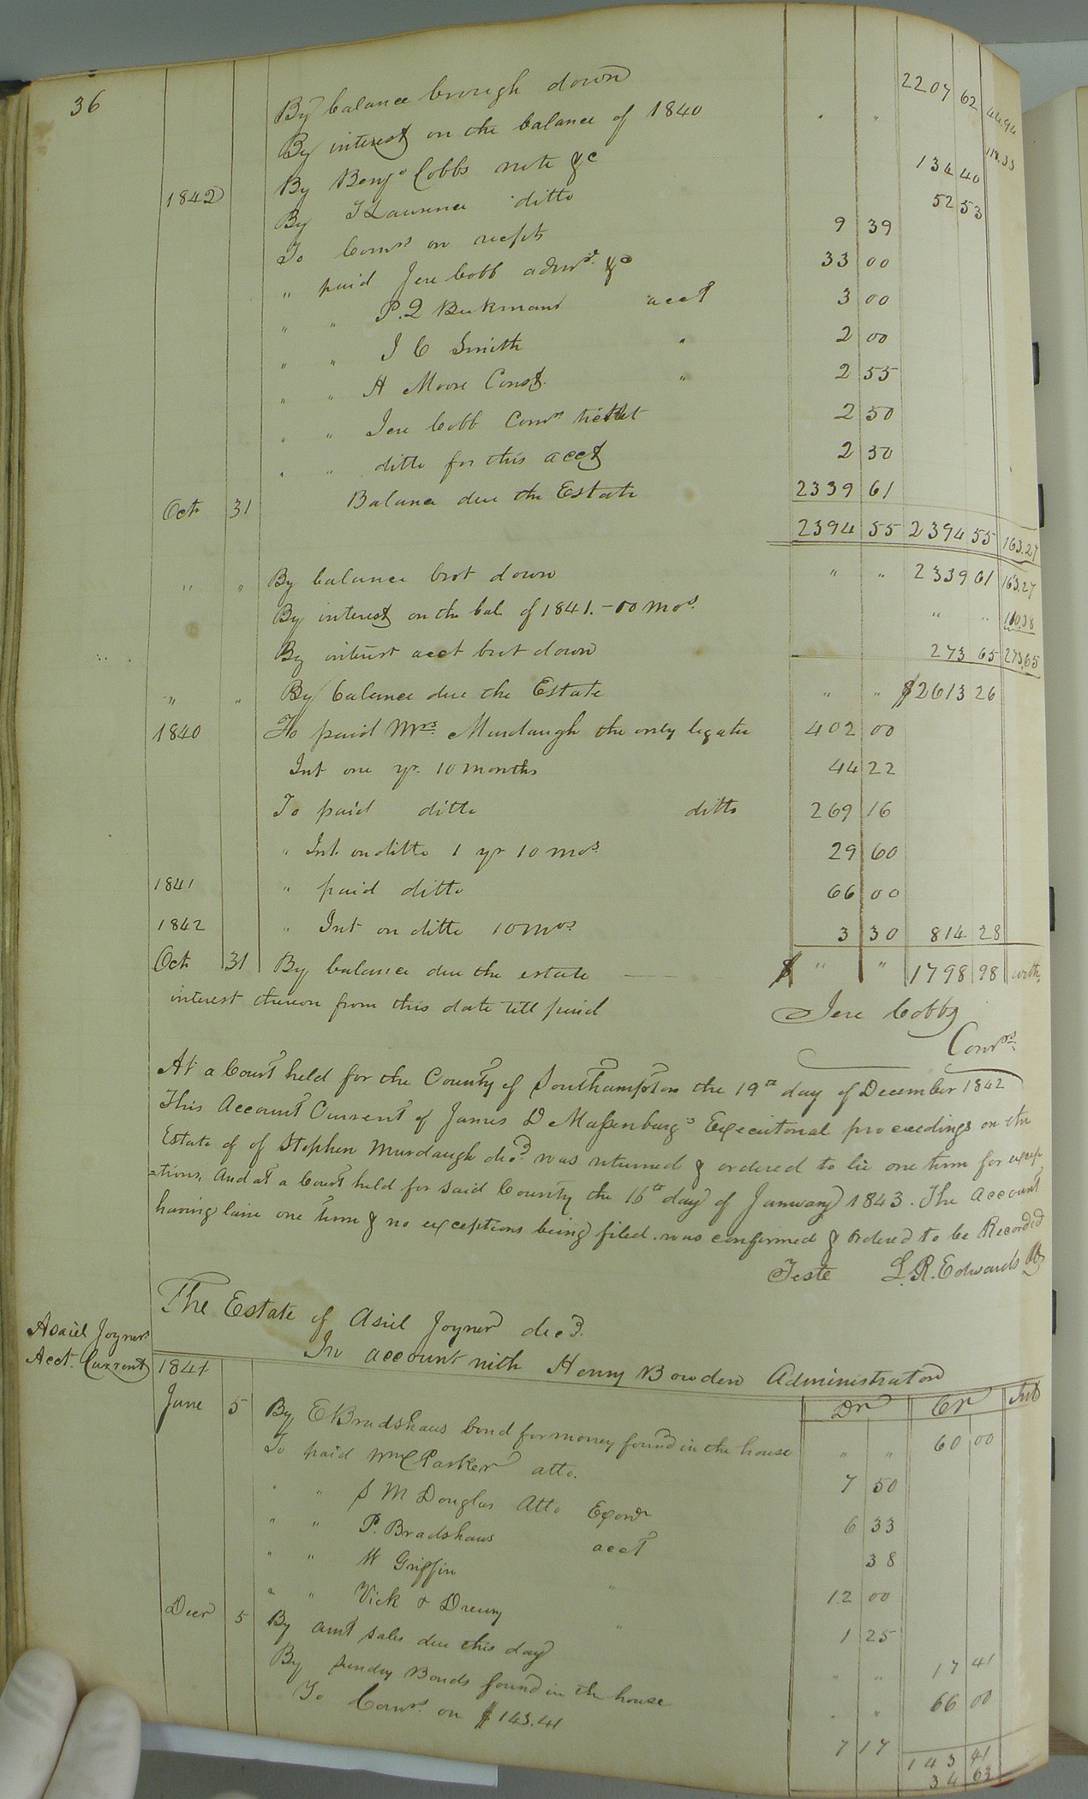 36
By balance brough down 2207 62 44.94
By interest on the balance of 1840 " " 118.33
1842 By Benjn Cobbs note &c 134 40
By J Laurence ditto 52 53
To Comrs on recepts 9 39
" paid Jere Cobb admr. &c 33 00
" " P. Q Beckmans acct 3 00
" " J C Smith " 2 00
" " H Moore Const. " 2 55
" " Jere Cobb Comrs ticket 2 50
" " ditto for this acct 2 50
Oct 31 Balance due the Estate 2339 61
2394 55 2394 55 163.27
" " By balance brot down " " 2339 61 163.27
By interest on the bal of 1841. - 00 mos. " " 110.38
By intrust acct brot down 273 65 273,65
" " By balance due the Estate " " $2613 26
1840 To paid Mrs. Murdaugh the only legatee 402 00
Int one yr. 10 months 44 22
To paid ditto ditto 269 16
" Int. on ditto 1 yr 10 mos. 29 60
1841 " paid ditto 66 00
1842 " Int on ditto 10 mos 3 30 814 28
Oct 31 By balance due the estate $ " " 1798 98 with
interest thereon from this date till paid
Jere Cobb
Comrs.
At a Court held for the County of Southampton the 19th day of December 1842
This Account Current of James D Massenburg's Executorial proceedings on the
Estate of of Stephen Murdaugh decd. was returned & ordered to lie one term for excep
=tions, and at a Court held for said County the 16th day of January 1843. The account
having laine one term & no exceptions being filed. was confirmed & ordered to be Recorded
Teste L. R. Edwards
Asaiel Joyners
Acct. Current
The Estate of Asiel Joyner decd.
In account with Henry Bowden Administrator
1841 Dr Cr Int
June 5 By E Bradshaws bond for money found in the house " " 60 00
To paid Wm C Parker atto. 7 50
" " S M Douglas Atto Exonr 6 33
" " P. Bradshaws acct 38
" " W Griffin " 12 00
" " Vick & Drewry " 1 25
Decr 5 By amt sales due this day " " 17 41
By sundry Bonds found in the house " " 66 00
To Comrs. on $143.41 7 17
143 41
34 63